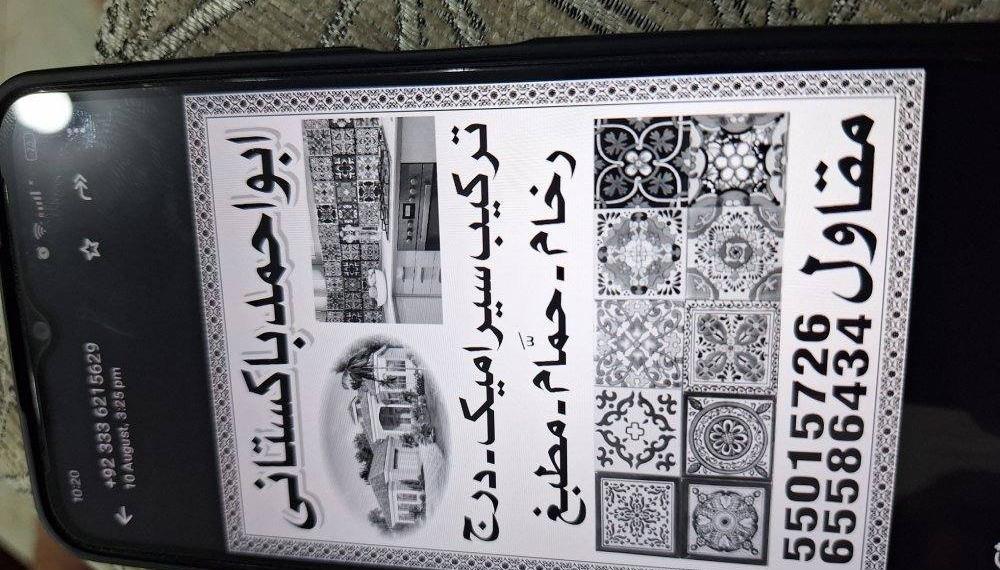 10:20
+92 333 6215629
10 August, 3:25 pm
ابو احمد باكستاني
تركيب سيراميك - درج
رخام - حمّام - مطبغ
مقاول
55015726
65586434